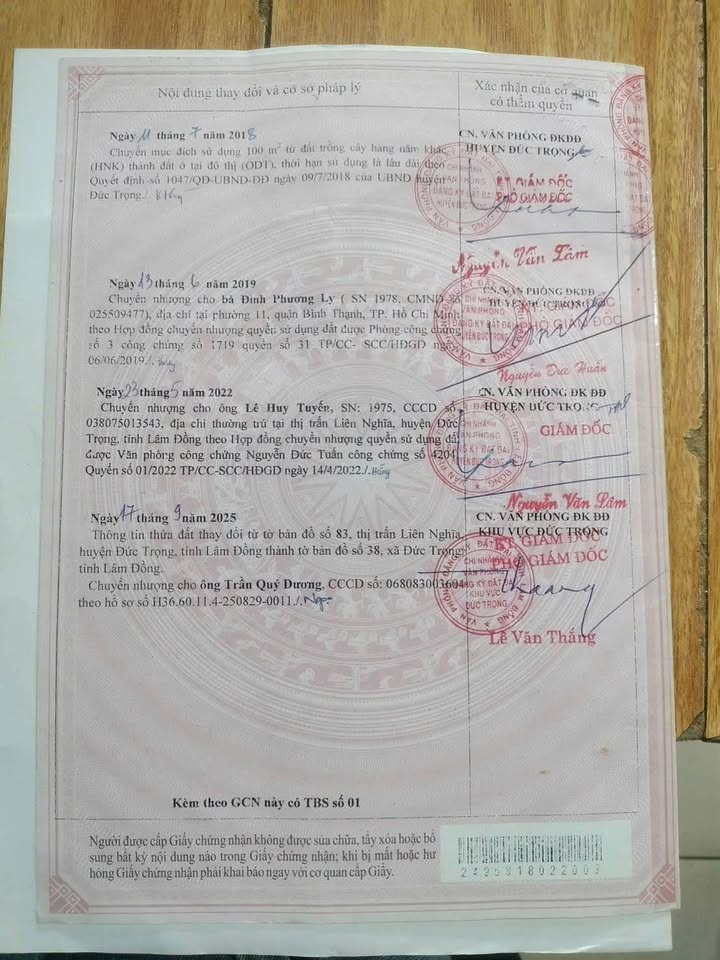 Nội dung thay đổi và cơ sở pháp lý
Xác nhận của cơ quan
có thẩm quyền
Ngày 11 tháng 7 năm 2018
Chuyển mục đích sử dụng 100 m² từ đất trồng cây hàng năm khác
(HNK) thành đất ở tại đô thị (ODT), thời hạn sử dụng là lâu dài theo
Quyết định số 1047/QĐ-UBND-DD ngày 09/7/2018 của UBND huyện
Đức Trọng./.
CN. VĂN PHÒNG ĐKĐD
HUYỆN ĐỨC TRỌNG
KT GIÁM ĐỐC
PHÓ GIÁM ĐỐC
Nguyễn Văn Lâm
Ngày 13 tháng 6 năm 2019
Chuyển nhượng cho bà Đinh Phương Ly ( SN 1978, CMND số
025509477), địa chỉ tại phường 11, quận Bình Thạnh, TP. Hồ Chí Minh
theo Hợp đồng chuyển nhượng quyền sử dụng đất được Phòng công chứng
số 3 công chứng số 1719 quyển số 31 TP/CC- SCC/HĐGD
06/06/2019./.
CN. VĂN PHÒNG ĐKĐD
HUYỆN ĐỨC TRỌNG
KT. GIÁM ĐỐC
PHÓ GIÁM ĐỐC
Nguyễn Đức Huấn
Ngày 23 tháng 5 năm 2022
Chuyển nhượng cho ông Lê Huy Tuyến, SN: 1975, CCCD số
038075013543, địa chỉ thường trú tại thị trấn Liên Nghĩa, huyện Đức
Trọng, tỉnh Lâm Đồng theo Hợp đồng chuyển nhượng quyền sử dụng đất
được Văn phòng công chứng Nguyễn Đức Tuấn công chứng số 4204,
Quyển số 01/2022 TP/CC-SCC/HĐGD ngày 14/4/2022./.
CN. VĂN PHÒNG ĐK ĐĐ
HUYỆN ĐỨC TRỌNG
GIÁM ĐỐC
Nguyễn Văn Lâm
Ngày 17 tháng 9 năm 2025
Thông tin thửa đất thay đổi từ tờ bản đồ số 83, thị trấn Liên Nghĩa,
huyện Đức Trọng, tỉnh Lâm Đồng thành tờ bản đồ số 38, xã Đức Trọng,
tỉnh Lâm Đồng.
Chuyển nhượng cho ông Trần Quý Dương, CCCD số: 068083003604
theo hồ sơ số H36.60.11.4-250829-0011./.
CN. VĂN PHÒNG ĐK ĐĐ
KHU VỰC ĐỨC TRỌNG
KT GIÁM ĐỐC
PHÓ GIÁM ĐỐC
CHI NHÁNH
VĂN PHÒNG
ĐĂNG KÝ ĐẤT ĐAI
KHU VỰC
ĐỨC TRỌNG
Lê Văn Thắng
Kèm theo GCN này có TBS số 01
Người được cấp Giấy chứng nhận không được sửa chữa, tẩy xóa hoặc bổ
sung bất kỳ nội dung nào trong Giấy chứng nhận; khi bị mất hoặc hư
hỏng Giấy chứng nhận phải khai báo ngay với cơ quan cấp Giấy.
2495818022003